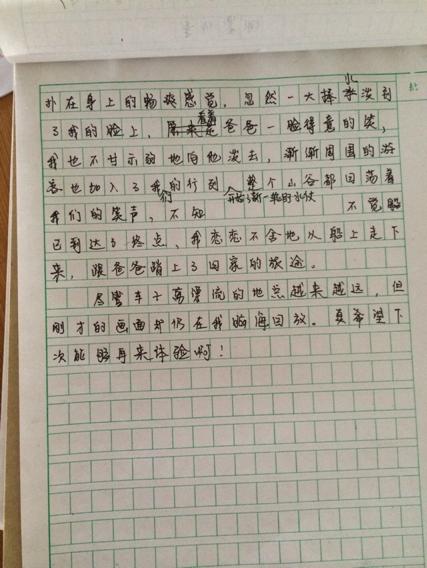 扑在身上的畅爽感觉，忽然一大捧水泼到
了我的脸上，看着爸爸一脸得意的笑，
我也不甘示弱地向他泼去，渐渐周围的游
客也加入了我们的行列，开始了新一轮的水仗，整个山谷都回荡着
我们的笑声，不知不觉船
已到达了终点，我恋恋不舍地从船上走下
来，跟爸爸踏上了回家的旅途。
尽管车子离漂流的地点越来越远，但
刚才的画面却仍在我脑海回放。真希望下
次能够再来体验啊！